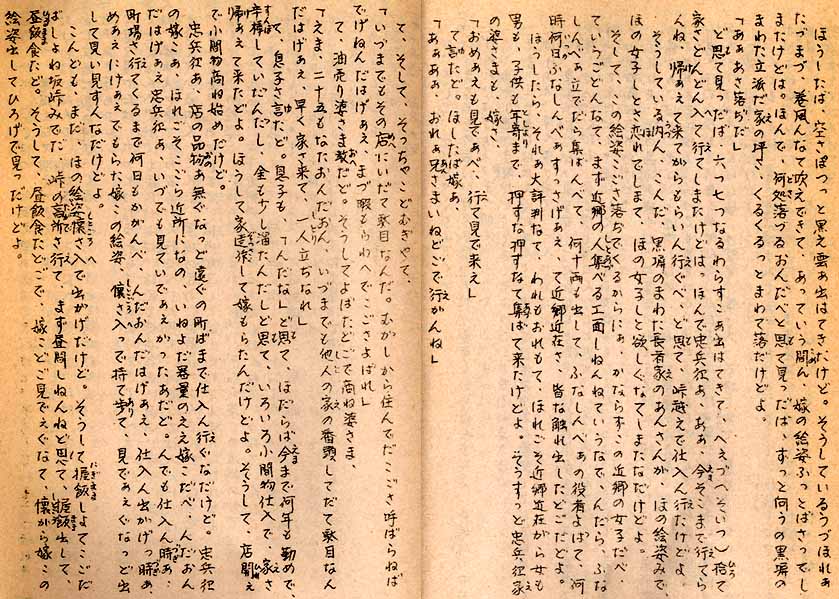 ほうしたば、空さぽつっと黒え雲ぁ出はてきたけど。そうしているうづほれぁ
たづまづ、巻風んなて吹えできて、あっていう間ん、嫁の絵姿ふっとばさってし
またけどは。ほんで、何処落づるおんだべと思て見っだば、ずっと向うの黒塀の
まわた立派だ家の坪さ、くるくるっとまわて落だけどよ。
「あぁあさ落ぢだ」
ど思て見っだば、六つ七つなるわらすこぁ出はてきて、へぇづへそいつ)捨て
家さどんどん入て行てしまたけどはっほんで忠兵衛ぁ、ああ、今そこまで行てら
んね、帰ぁえて来てがらもらいん行ぐべ、ど思て、峠越えで仕入ん行たけどよ。
そうしているん、こんだ、黒塀のまわた長者家のあんさんが、ほの絵姿みで、
ほの女子しとさ恋れでしまて、ほの女子しと欲しぐなてしまたなだけど。
そして、この絵姿こごさ落ぢでくるからにぁ、かならずこの近郷の女子だべ、
ていうごどんなて、まず近郷の人集べる工面しねんねていうなで、んだら、ふな
しんべぁ立でだら集ばんべて、何十両も出して、ふなしんべぁの役者よばて、何
時何日ふなしんべぁすっさげぁえ、て近郷近在さ、皆な触れ出したどごだどよ。
ほうしたら、それぁ大評判なて、われもおれもて、ほれごそ近郷近在がら女も
男も、子供も年寄まで、押すな押すなて集ばて来たけどよ。そうすっど忠兵衛家
の婆さまも、嫁さ、
「おめぁえも見であべ、行て見で来え」
て言たど。ほしたば嫁ぁ、
「あぁぁぁ、おれぁ見さまいねどごで行がんね」
て、そして、そっちゃこどむぎやて、
「いづまでもその店にいだて駄目なんだ。むかしから住んでだこごさ呼ばらねば
でげねんだはげぁえ、まづ暇もらわへでごさよばれ」
て、油売り婆さま教だど。そうしてよばたどごで商ね婆さま、
「えま、二十五もなたおんだおん、いづまでも他人の家の番頭してだて駄目なん
だはげぁえ、早く家さ来て、一人立ぢなれ」
て、息子さ言たど。息子も、「んだな」ど思て、ほだらば今まで何年も勤めで、
辛棒していだんだし、金も少し溜たんだしど思て、いろいろ小間物仕入で、家さ
帰ぁえて来たどよ。ほうして家造築して嫁もらたんだけどよ。そうして、店開え
で小間物商ね始めだけど。
忠兵衛ぁ、店の品物ぁ無ぐなっど遠ぐの町ばまで仕入ん行ぐなだけど。忠兵衛
の嫁こぁ、ほれごそこごら近所になの、いねよだ器量のええ嫁こだべ、んだおん
だはげぁえ忠兵衛ぁ、いづでも見ていでぁえかったあだど。んでも仕入ん時ぁ、
町場さ行てくるまで何日もかがんべ、んだおんだはげぁえ、仕入ん出かげっ時ぁ、
めぁえにげぁえでもらた嫁この絵姿、懐さ入って持て歩て、見であぇぐなっど出
して見い見すんなだけどよ。
こんども、まだ、ほの絵姿懐さ入で出かげだけど。そうして握飯しよてこごだ
ばしょね坂峠みでだ、峠の高所さ行て、まず昼間しねんねど思て、握飯出して、
昼飯食たど。そうして、昼飯食たどごで、嫁こどご見でえぐなて、懐から嫁この
絵姿出してひろげで見っだけどよ。